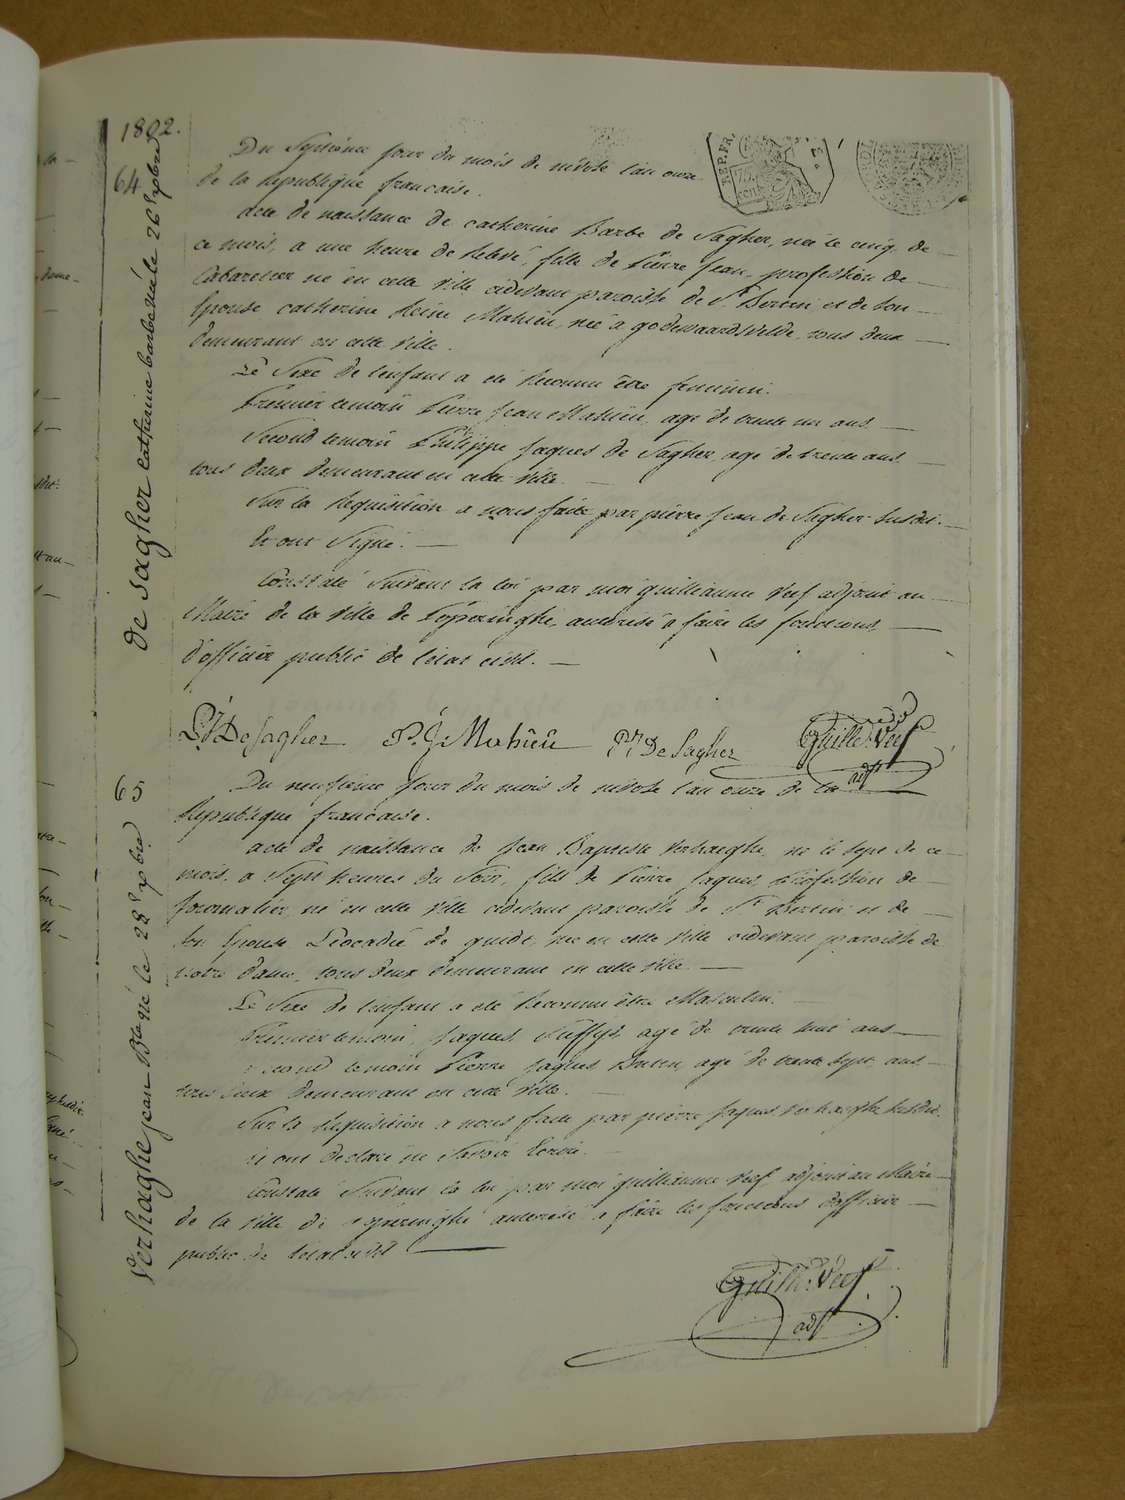 1802.
64
de Sagher Catherine barbe née le 26 Xbre
Du Septiéme jour du mois de nivôse l'an onze
de la République francaise.
acte de naissance de catherine Barbe de Sagher, née le cinq de
ce mois, a une heure de relevé, fille de Pierre Jean, profession de
Cabaretier né en cette ville cidevant paroisse de St Bertin et de son
Epouse catherine Reine Mahieu, née à godewaardsvelde, tous deux
demeurant en cette ville.
Le Sexe de l'enfant a été Reconnu être feminin.
Premier temoin Pierre Jean Mahieu, agé de trente un ans
Second temoin Philippe Jaques de Sagher agé de trente ans
tous deux demeurant en cette ville.
Sur la Requisition a nous faite par pierre Jean de Sagher Susdit.
Et ont Signé.
Constaté Suivant la loi par moi guillianme Verf adjoint au
Maire de la ville de Poperinghe, autorisé a faire les fonctions
d'officier public de l'etat civil.
PJ DeSagher P. J. Mahieu PJ De Sagher Guille. Verf
adjt
65
Verhaghe jean Bte né le 28 Xbre
Du neufieme jour du mois de nivôse l'an onze de la
Republique francaise.
acte de naissance de Jean Baptiste Verhaeghe, né le sept de ce
mois, a Sept heures du Soir, fils de Pierre Jaques, Profession de
Journalier, né en cette ville cidevant paroisse de St Bertin et de
Son Epouse Léocadie de guide, née en cette ville cidevant paroisse de
notre dame, tous deux demeurant en cette ville.
Le Sexe de l'enfant a été Reconnu être Masculin.
Premier temoin, Jaques agé de trente huit ans
Second temoin Pierre Jaques agé de trente sept ans
tous deux demeurant en cette ville.
Sur la Requisition a nous faite par pierre Jaques Verhaeghe Susdit.
et ont declaré ne Savoir Ecrire.
Constaté Suivant la loi par moi guillianme Verf adjoint au Maire
de la ville de Poperinghe autorisé a faire les fonctions d'officier
public de l'etat civil
Guille. Verf
adjt